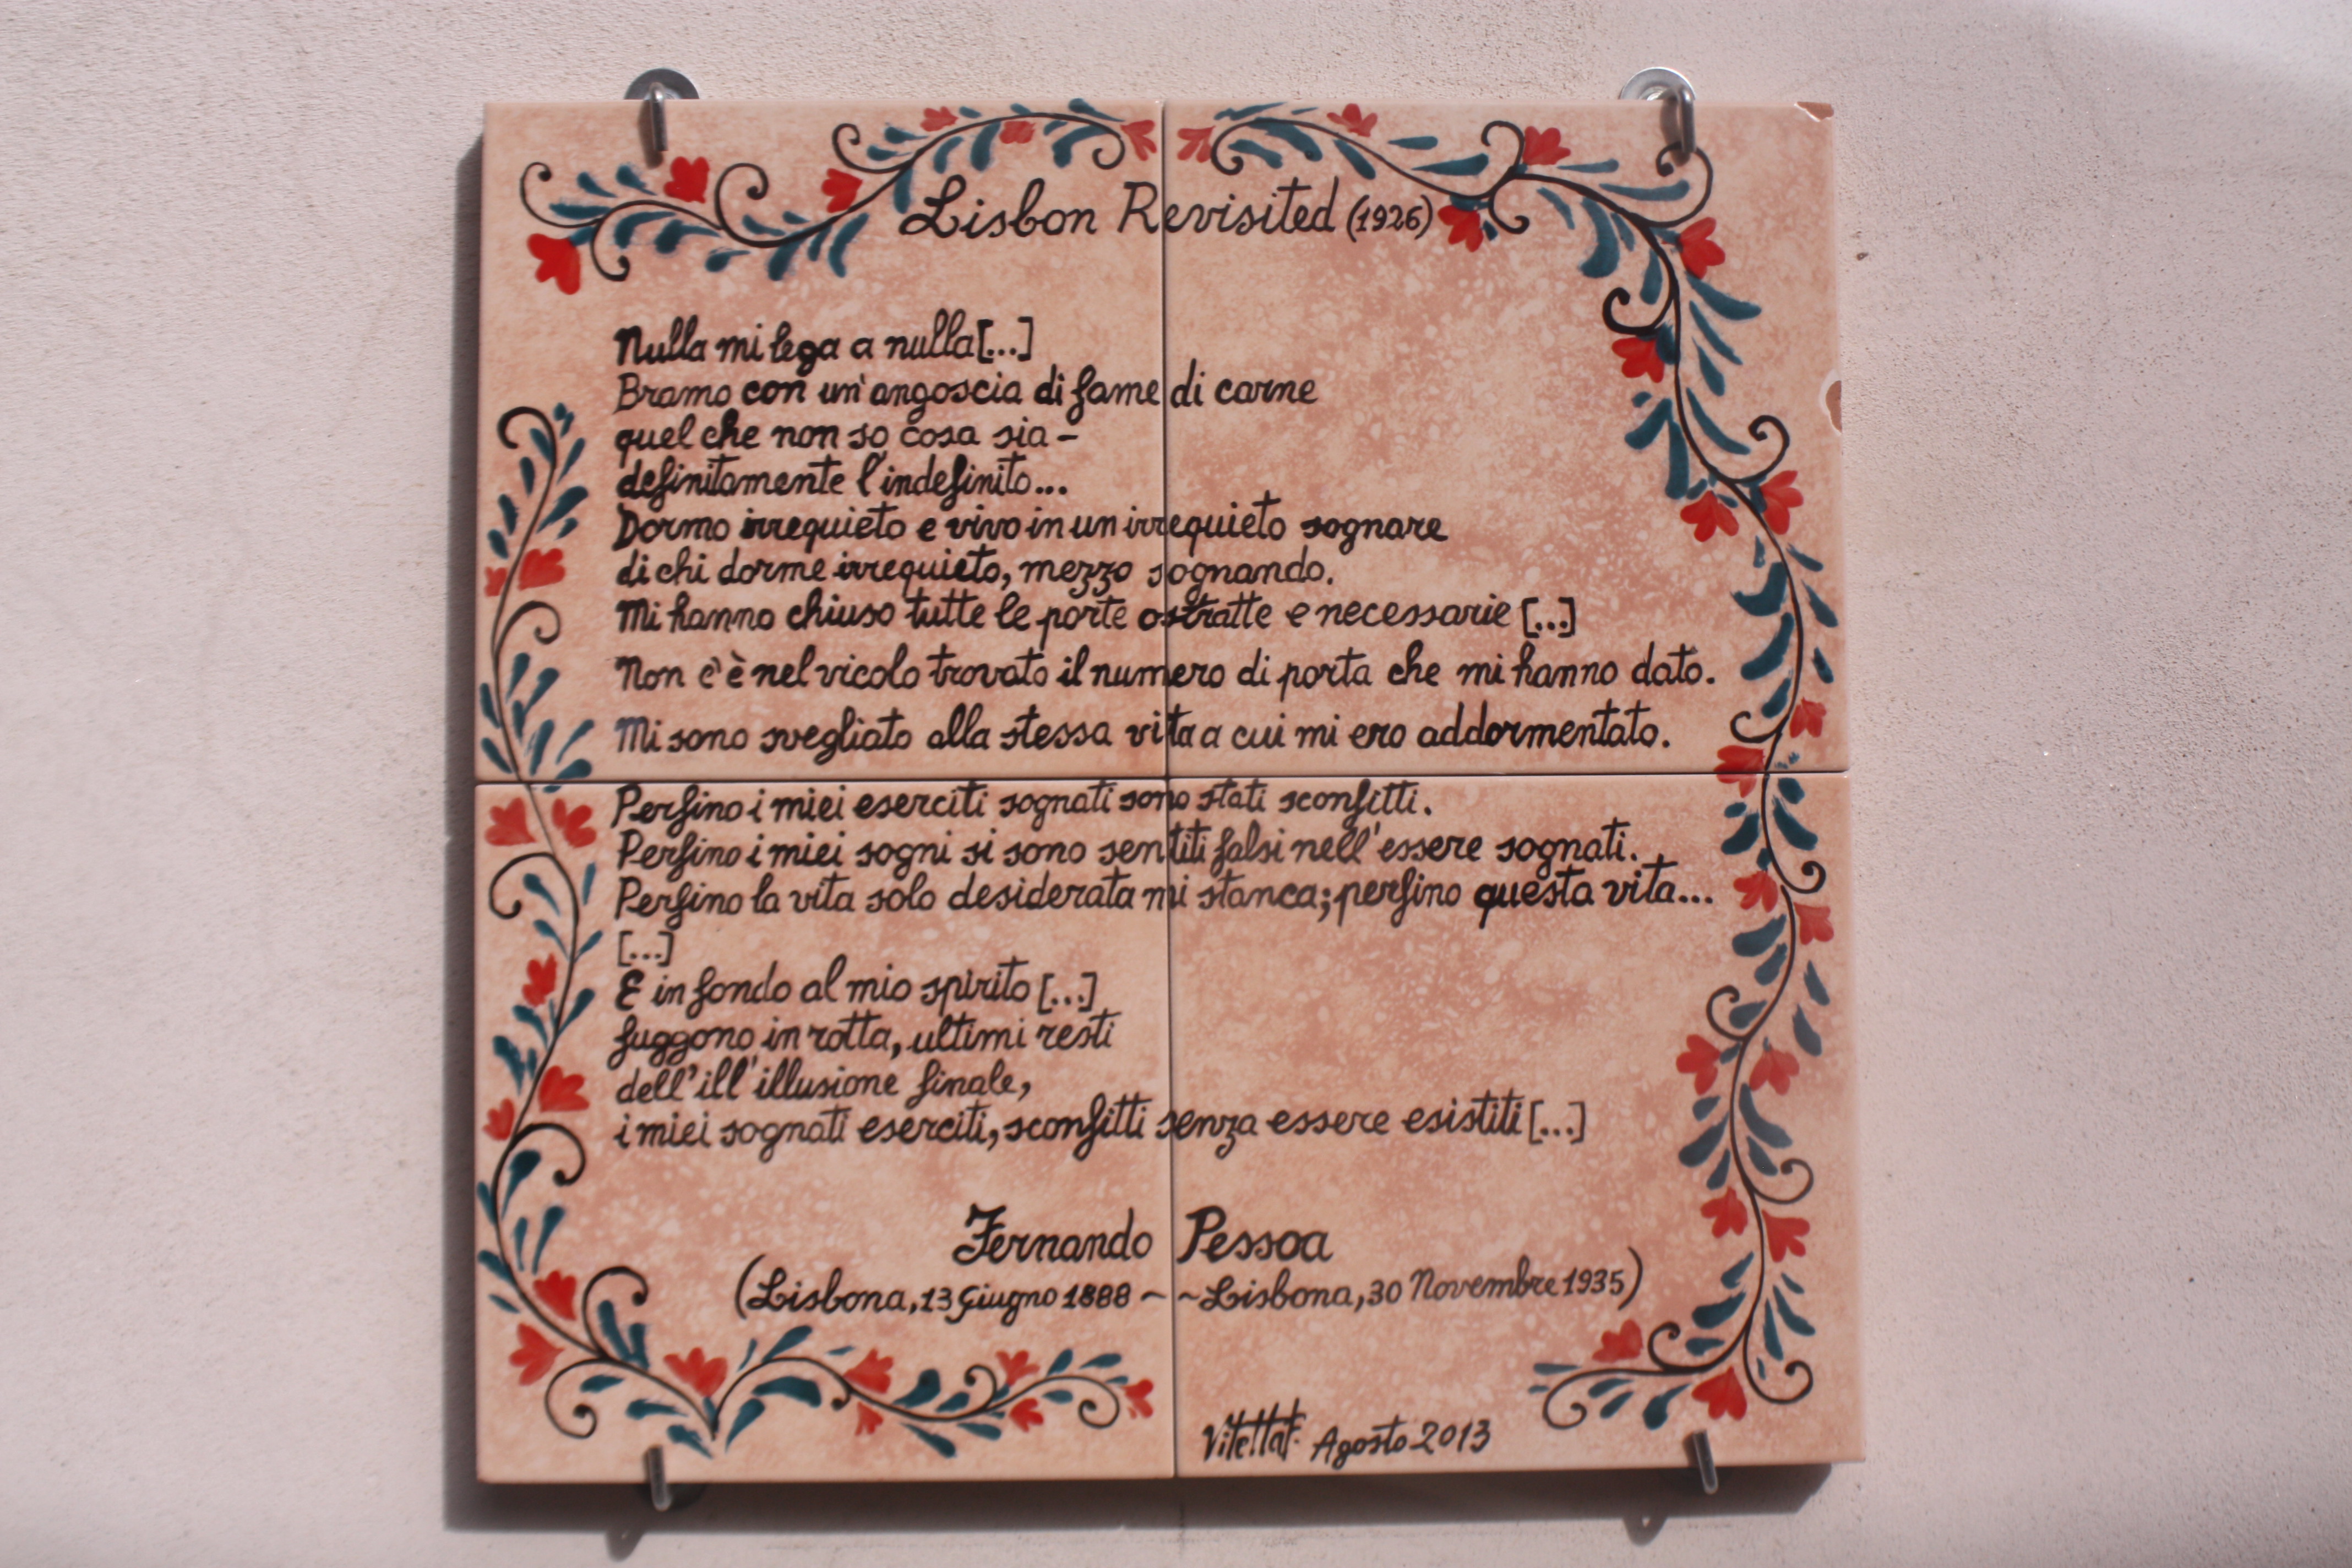 Lisbon Revisited (1926)
Nulla mi lega a nulla[...]
Bramo con un'angoscia di fame di carne
quel che non so cosa sia -
definitamente l'indefinito...
Dormo irrequieto e vivo in un irrequieto sognare
di chi dorme irrequieto, mezzo sognando.
Mi hanno chiuso tutte le porte astratte e necessarie [...]
Non c'è nel vicolo trovato il numero di porta che mi hanno dato.
Mi sono svegliato alla stessa vita a cui mi ero addormentato.
Perfino i miei eserciti sognati sono stati sconfitti.
Perfino i miei sogni si sono sentiti falsi nell'essere sognati.
Perfino la vita solo desiderata mi stanca; perfino questa vita...
[...]
E in fondo al mio spirito [...]
fuggono in rotta, ultimi resti
dell'ill'illusione finale,
i miei sognati eserciti, sconfitti senza essere esistiti [...]
Fernando Pessoa
(Lisbona, 13 Giugno 1888 ~ ~ Lisbona, 30 Novembre 1935)
Agosto 2013